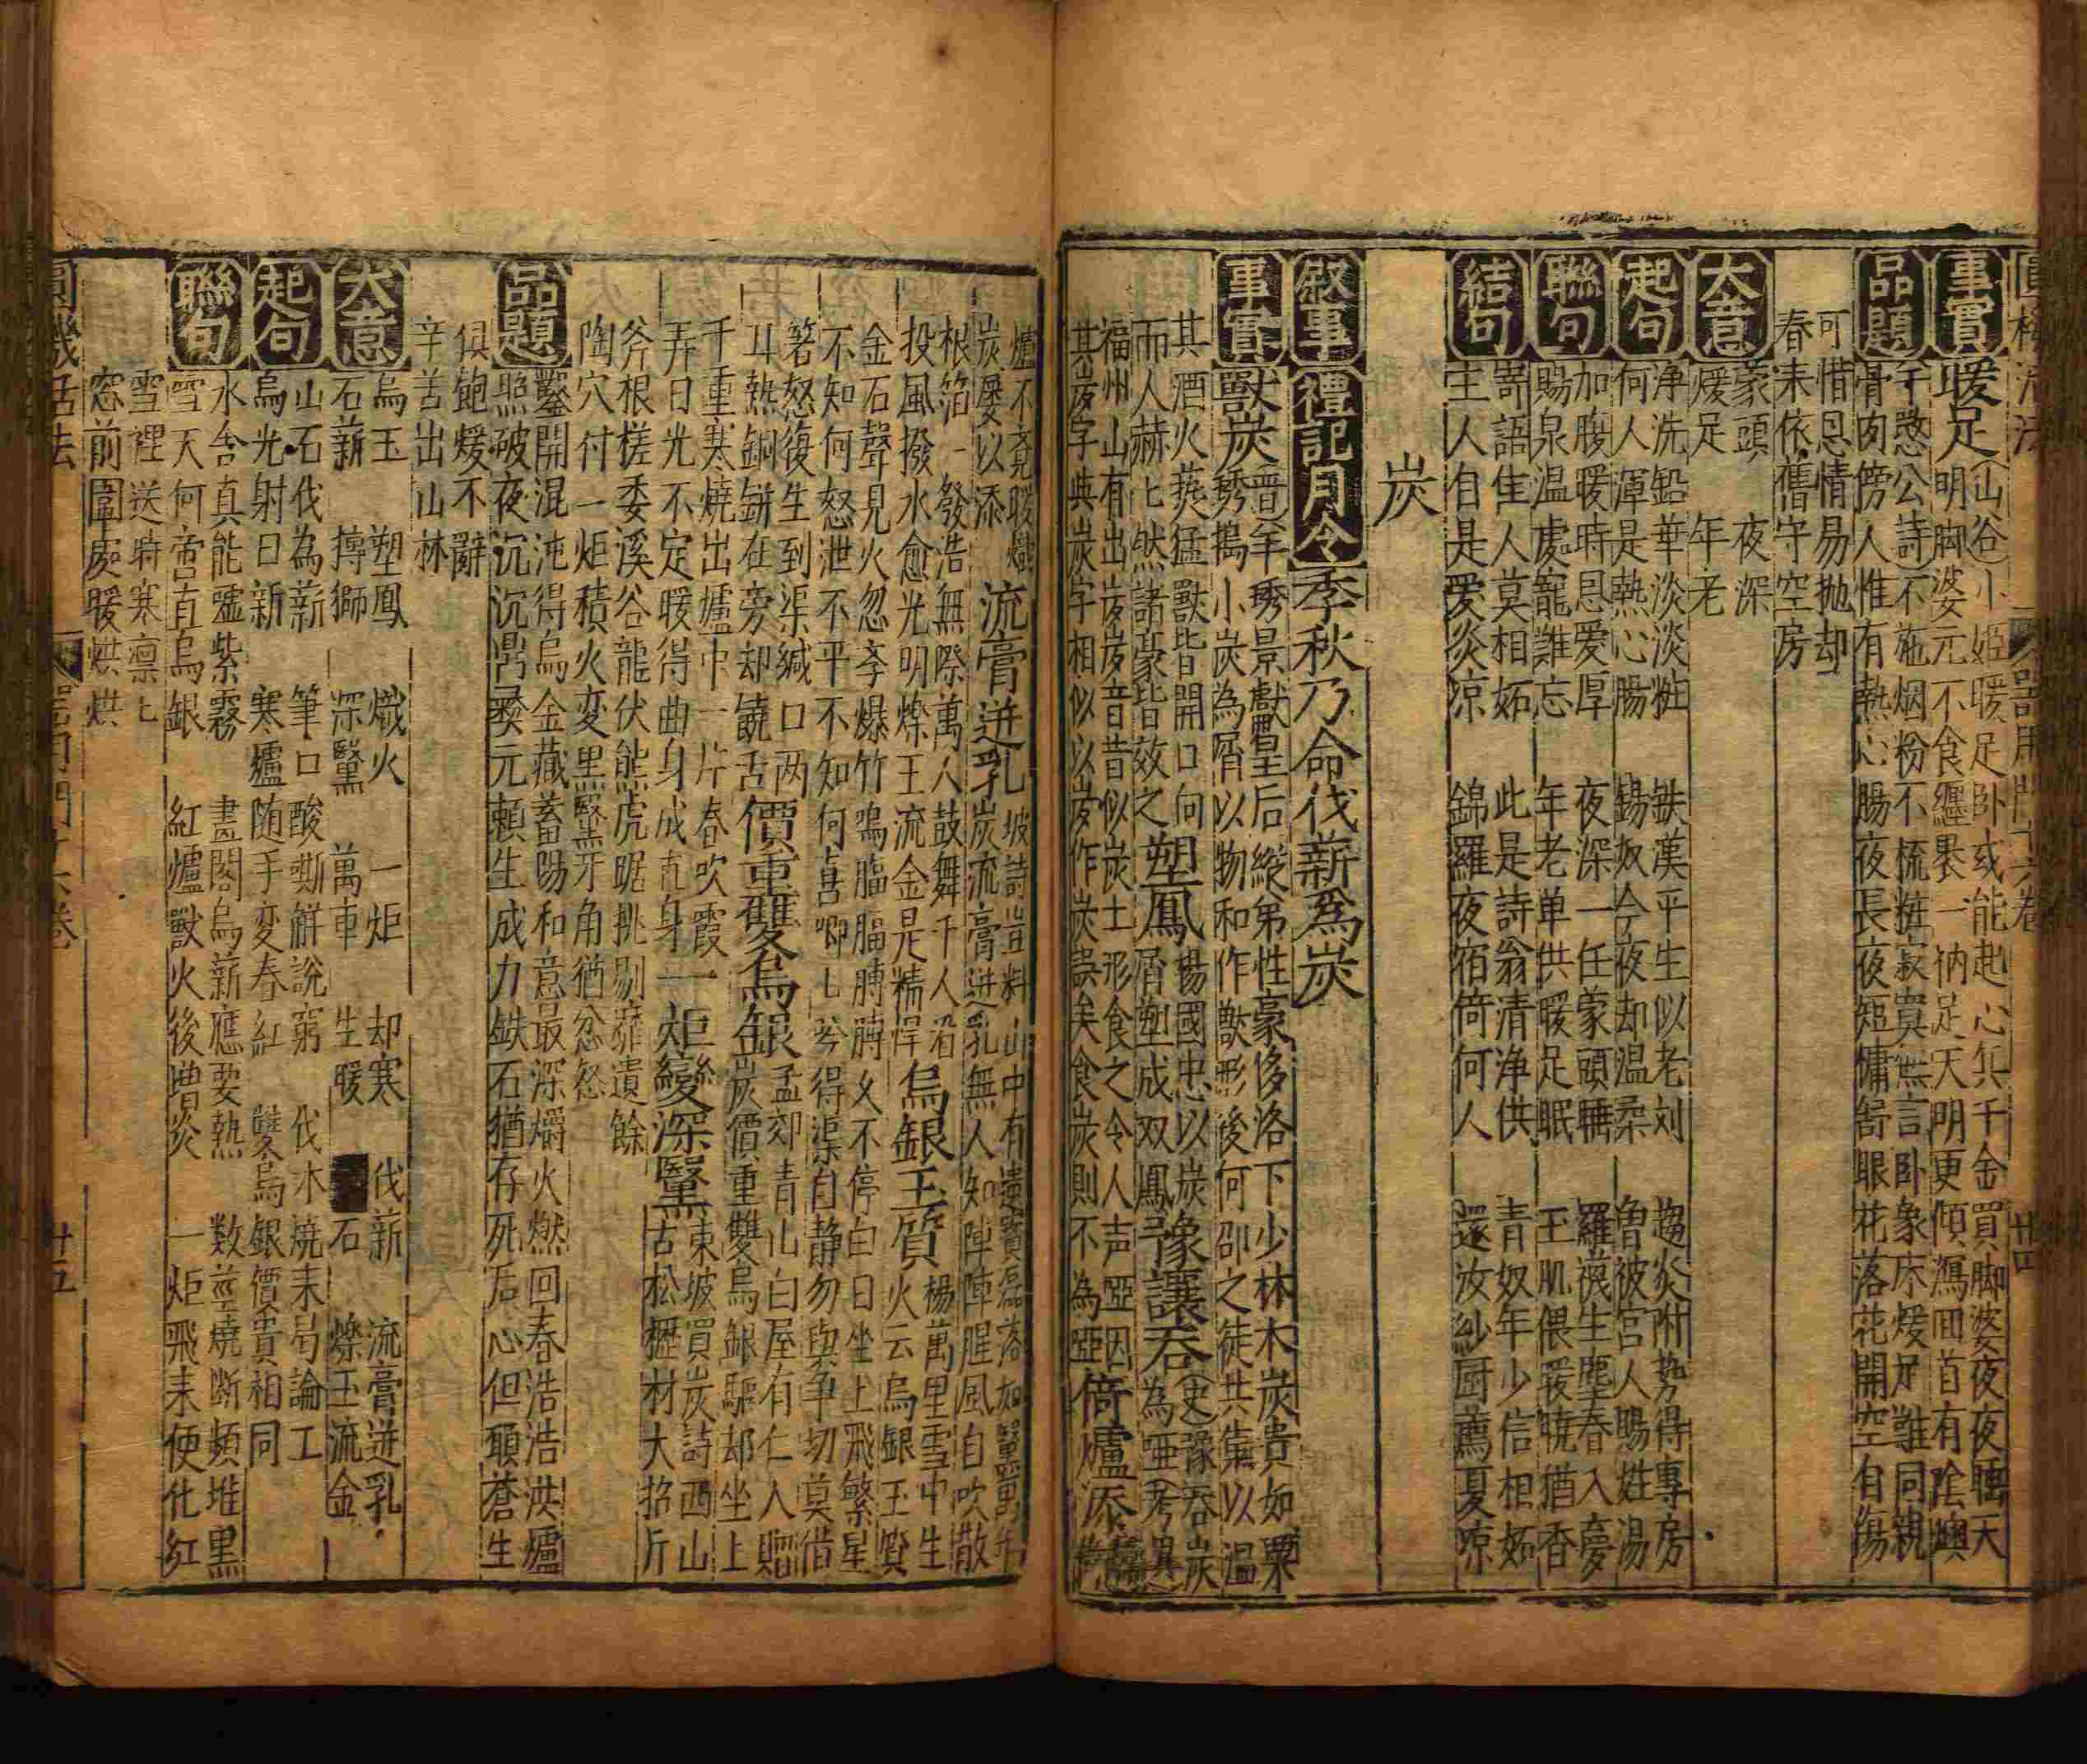 圓機活法 器用門十六卷 廿四
事實
暖足
山谷小姬暖足卧或能起心兵千金買脚婆夜夜睡天
明脚婆元不食纏裹一衲足天明更傾瀉囬首有陰燠
品題
千愁公詩不施烟粉不梳粧寂寞無言卧象床煖足難同親
骨肉傍人惟有熱心腸夜長夜短慵舒眼花落花開空自傷
可惜恩情易抛却
春来依舊守空房
大意
蒙頭 夜深
煖足 年老
起句
浄洗鉛華淡淡粧 鉄漢平生似老刘 趨炎附勢得專房
何人渾是熱心腸 錫奴今夜却温柔 曽被宫人賜姓湯
聯句
加腹暖時恩爱厚 夜深一任蒙頭睡 羅襪生塵春入夢
賜泉温處寵難忘 年老单供暖足眠 玉肌偎暖暁猶香
結句
寄語佳人莫相妬 此是詩翁清浄供 青奴年少信相妬
生人自是爱炎凉 錦羅夜宿倚何人 還汝紗厨薦夏凉
炭
叙事
禮記月令
季秋乃命伐薪為炭
事實
獸炭
晋羊琇景獻皇后縱弟性豪侈洛下少林木炭貴如粟
琇搗小炭為屑以物和作獸形後何邵之徒共集以温
其酒火爇猛獸皆開口向
而人赫匕然諸豪皆效之
塑鳳
楊國忠以炭
屑塑成双鳳
豫讓吞
史豫吞炭
為啞考異
福州山有出岌岌音昔似炭土形食之令人声啞因
其岌字與炭字相似以岌作炭誤矣食炭則不為啞
倚爐添
爐不竟暖熾
炭屡以添
流膏迸乳
坡詩豈料山中有遺寶磊落如黳萬車
炭流膏迸乳無人知陣陣腥風自吹散
根苗一發浩無際萬人鼓舞千人看
投風撥水愈光明爍玉流金是精悍
烏銀玉質
楊萬里雪中生
火云烏銀玉質
金石聲見火忽李爆竹鳴膈膈膊膊乆不停白日坐上飛繁星
不知何怒泄不平不知何喜唧匕兮得渠自静勿與争切莫借
箸怒復生到渠緘口两
耳熱銅缾在旁却饒舌
價重雙烏銀
孟郊青山白屋有仁人贈
炭價重雙烏銀驅却坐上
千重寒燒出爐中一片春吹霞
弄日光不定暖得曲身成直身
一炬變深黳
東坡買炭詩西山
古松櫪材大招斤
斧根槎委溪谷龍伏熊虎踞挑剔靡遺餘
陶穴付一炬積火变黒黳牙角猶忿怒
品題
鑿開混沌得烏金藏蓄陽和意最深爝火燃回春浩浩洪爐
照破夜沉沉鼎彝元頼生成力鉄石猶存死后心但願蒼生
俱飽煖不辭
辛苦出山林
大意
烏玉 塑鳳 熾火 一炬 却寒 伐薪 流膏迸乳
石薪 摶獅 深黳 萬車 生暖 石 爍玉流金
起句
山石伐為薪 筆口酸嘶觧説窮 伐木燒来曷論工
烏光射日新 寒爐随手変春紅 雙烏銀價貴相同
聯句
水含真能嘘紫霧 畫閣烏薪應要熱 数莖燒断頻堆黒
雪天何啻直烏銀 紅爐獸火後増炎 一炬飛来便化紅
雪裡送時寒凛匕
窓前圍處暖烘烘
圓機活法 器用門十六卷 廿五